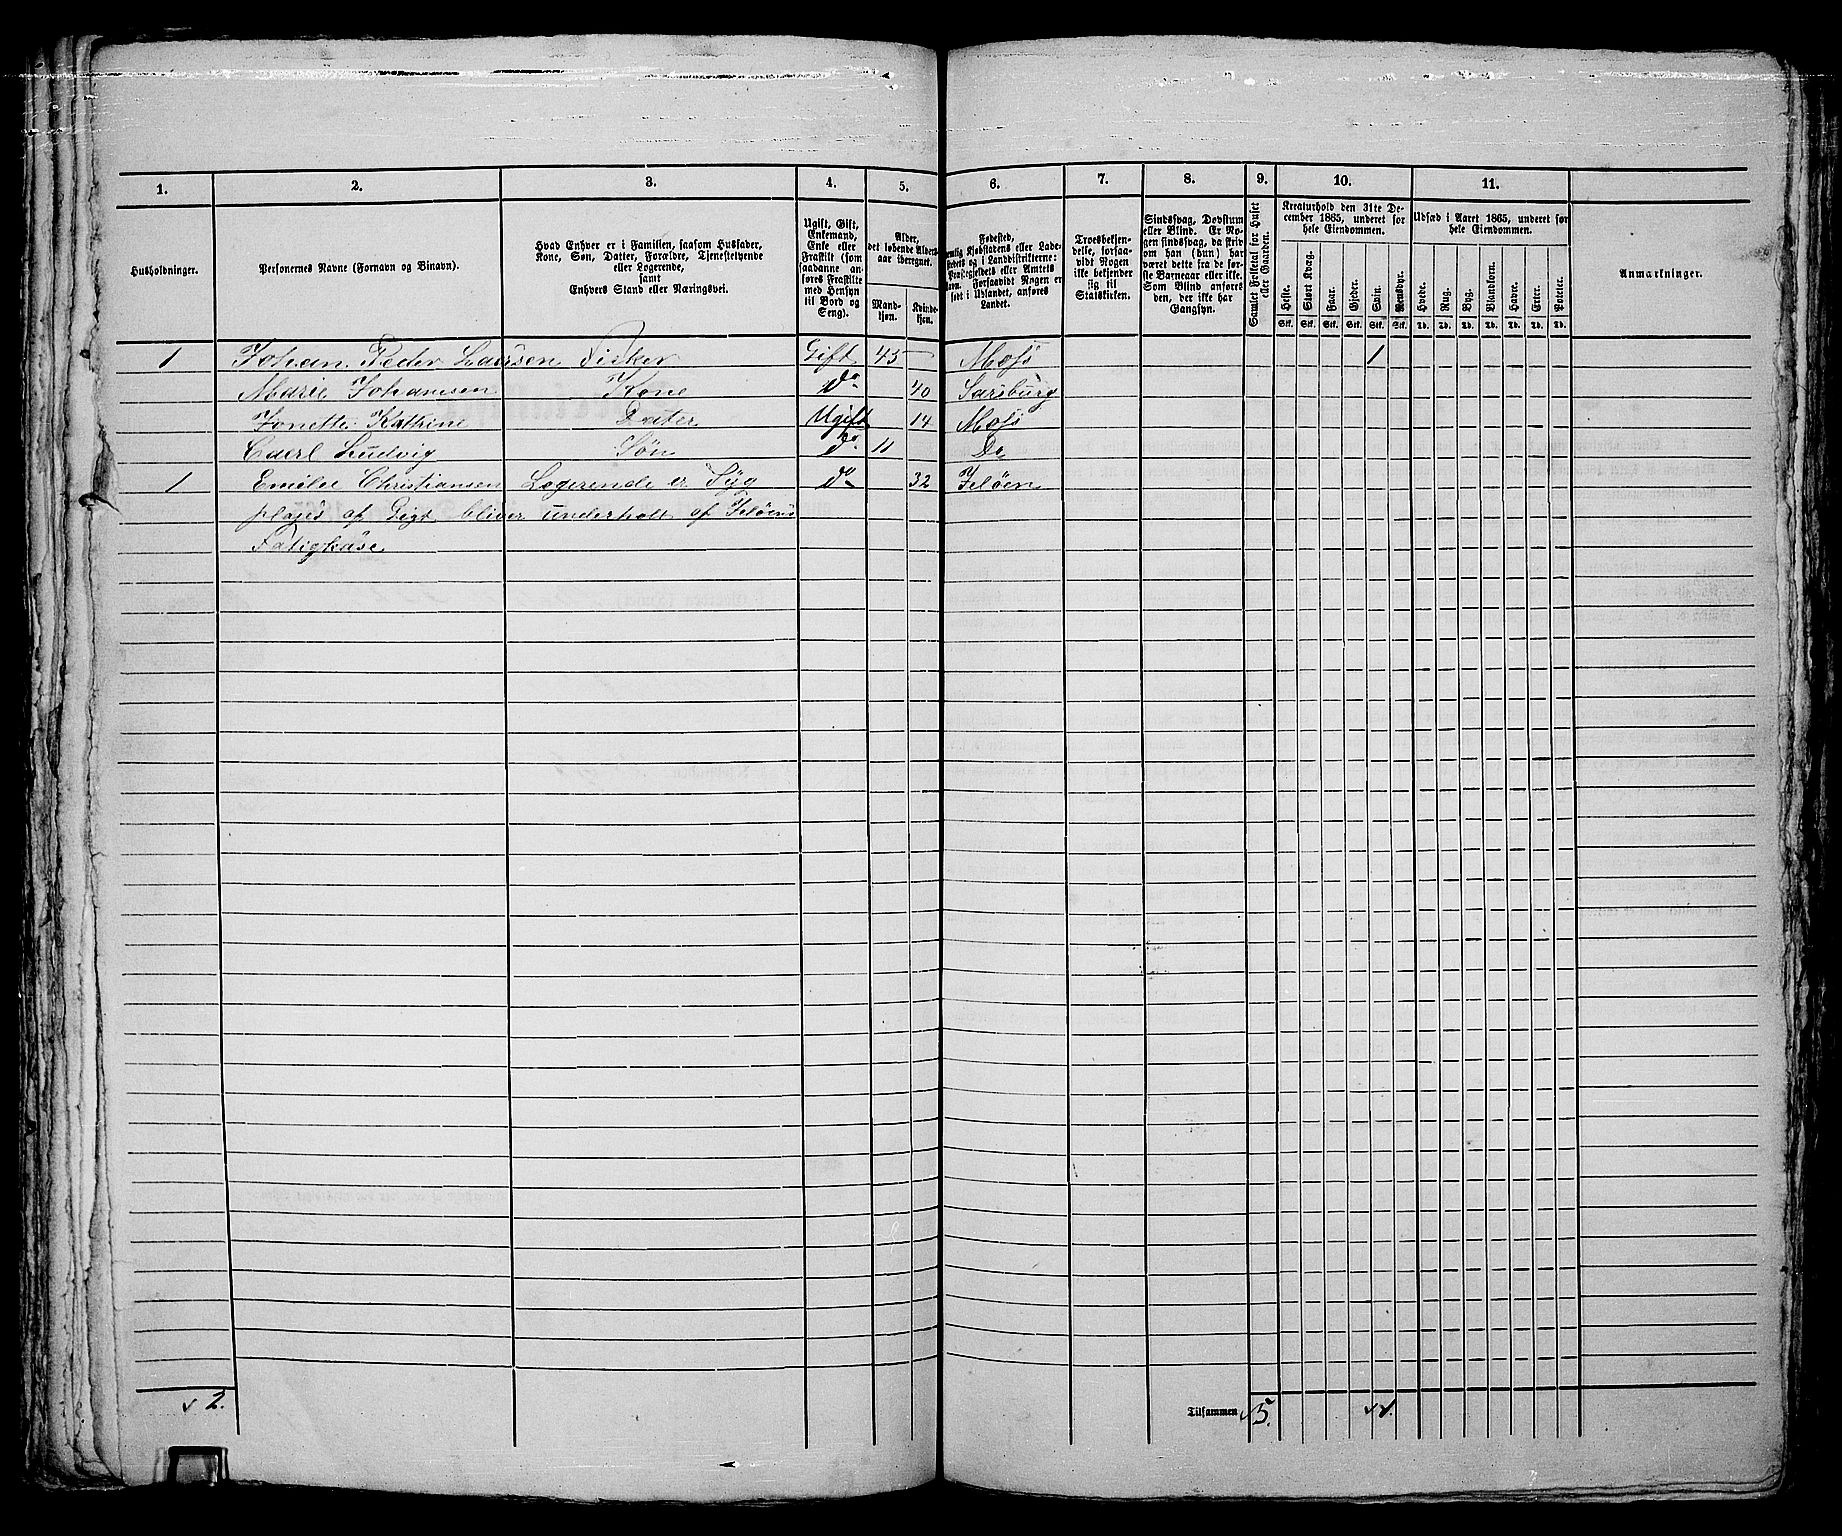 1. 2. 3. 4. 5. 6. 7. 8. 9. 10. 11.
Husholdninger.
Personernes Navne (Fornavn og Binavn).
Hvad Enhver er i Familien, saasom Husfader,
Kone, Søn, Datter, Forældre, Tjenestetyende
eller Logerende,
samt
Enhvers Stand eller Næringsvei.
Ugift, Gift,
Enkemand,
Enke eller
Fraskilt (som
saadanne an-
føres Fraskilte
med Hensyn
til Bord og
Seng).
Alder,
det løbende Alders-
aar iberegnet.
Mand-
kjøn.
Kvinde-
kjøn.
Fødested,
nemlig Kjøbstadens eller Lade-
stedets og i Landdistrikterne:
Præstegjeldets eller Amtets
Navn. Forsaavidt Nogen er
født i Udlandet, anføres
Landet.
Troesbekjen-
delse, forsaa-
vidt Nogen
ikke bekjender
sig til
Statskirken.
Sindssvag, Døvstum
eller Blind. Er No-
gen sindssvag, da skriv
om han (hun) har
været dette fra de før-
ste Barneaar eller ikke.
Som Blind anføres
den, der ikke har
Gangsyn.
Samlet Folketal for Huset
eller Gaarden.
Kreaturhold den 31te De-
cember 1865, underet for
hele Eiendommen.
Heste. Stort Kvæg. Faar. Gjeder. Svin. Rensdyr.
Stk. Stk. Stk. Stk. Stk. Stk.
Udsæd i Aaret 1865, underet for
hele Eiendommen.
Hvede. Rug. Byg. Blandkorn. Havre. Erter. Poteter.
Td. Td. Td. Td. Td. Td. Td.
Anmærkninger.
1 Johan Peder Larsen Fisker Gift 45 — Moss 1
Marie Johansen Kone Do 40 Sarsburg
Jonette Kathrine Dater Ugift 14 Moss
Caerl Ludvig Søn Do 11 Do
1 Emilee Christiansen Logerende er Syg Do 32 Jeløen
plaged af Gigt bliver underholt af Jeløens
Fatigkase
2. Tilsammen 5. 1.